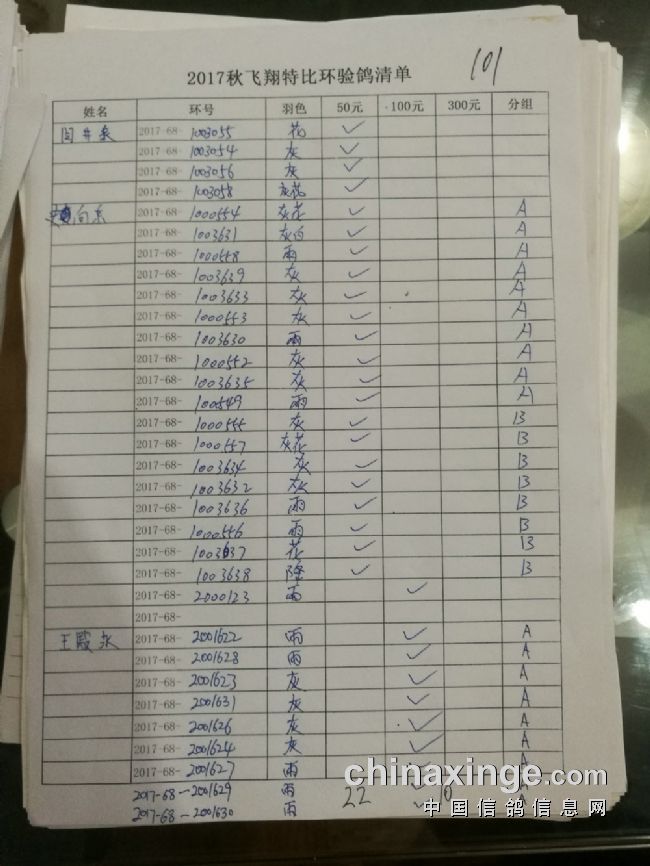 101
2017秋飞翔特比环验鸽清单
姓名 环号 羽色 50元 100元 300元 分组
闫井泉 2017-68- 1003055 花 ✓
2017-68- 1003054 灰 ✓
2017-68- 1003056 灰 ✓
2017-68- 1003058 灰花 ✓
向东 2017-68- 1000554 灰花 ✓ A
2017-68- 1003631 灰白 ✓ A
2017-68- 1000558 雨 ✓ A
2017-68- 1003639 灰 ✓ A
2017-68- 1003633 灰 ✓ A
2017-68- 1000553 灰 ✓ A
2017-68- 1003630 雨 ✓ A
2017-68- 1000552 灰 ✓ A
2017-68- 1003635 灰 ✓ A
2017-68- 1000549 雨 ✓ A
2017-68- 1000555 灰 ✓ B
2017-68- 1000557 灰花 ✓ B
2017-68- 1003634 灰 ✓ B
2017-68- 1003632 灰 ✓ B
2017-68- 1003636 雨 ✓ B
2017-68- 1000556 雨 ✓ B
2017-68- 1003637 花 ✓ B
2017-68- 1003638 隆 ✓ B
2017-68- 2000123 雨 ✓
2017-68-
王殿永 2017-68- 2001622 雨 ✓ A
2017-68- 2001628 雨 ✓ A
2017-68- 2001623 灰 ✓ A
2017-68- 2001631 灰 ✓ A
2017-68- 2001626 灰 ✓ A
2017-68- 2001624 灰 ✓ A
2017-68- 2001627 雨 ✓ A
2017-68-2001629 雨 22 ✓ A
2017-68-2001630 雨 ✓ A
chinaxinge.com
中国信鸽信息网